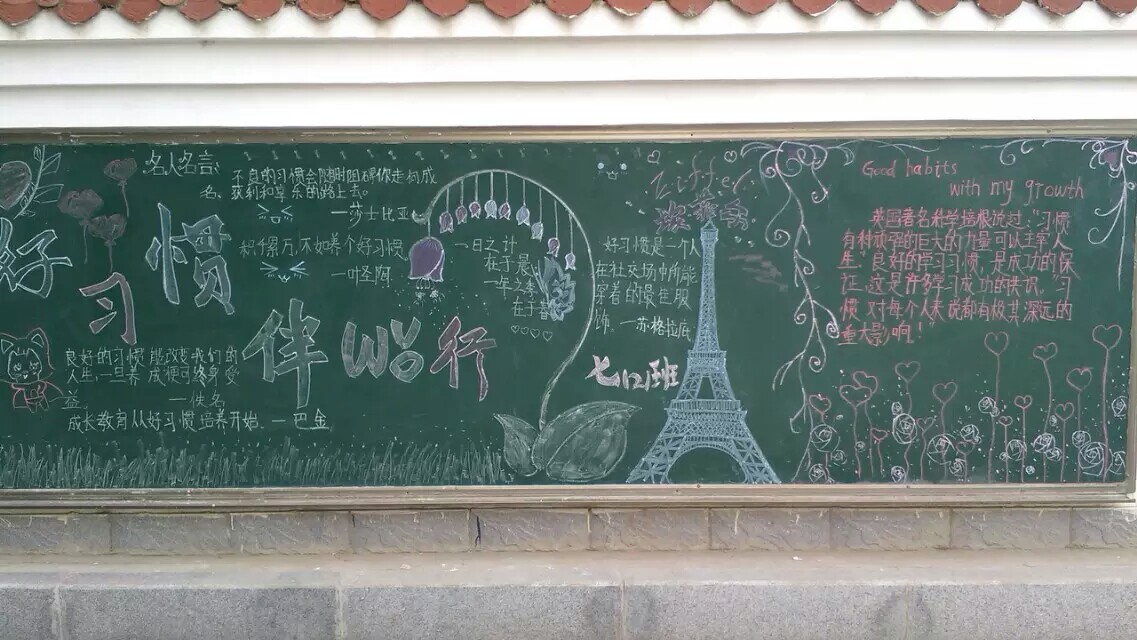 好
习
惯
伴
WO
行
名人名言:
不良的习惯会随时阻碍你走向成
名、获利和享乐的路上去。
—莎士比亚
积千累万,不如养个好习惯
—叶圣陶
良好的习惯能改变我们的
人生,一旦养成便可终身受
益 —佚名
成长教育从好习惯培养开始. —巴金
一日之计
在于晨
一年之季
在于春
好习惯是一个人
在社交场中所能
穿着的最佳服
饰。—苏格拉底
七12班
Good habits
with my growth
英国著名科学培根说过:“习惯
有种顽强的巨大的力量可以主宰人
生”良好的学习习惯,是成功的保
证.这是许多学习成功的共识。习
惯对每个人来说都有极其深远的
重大影响!